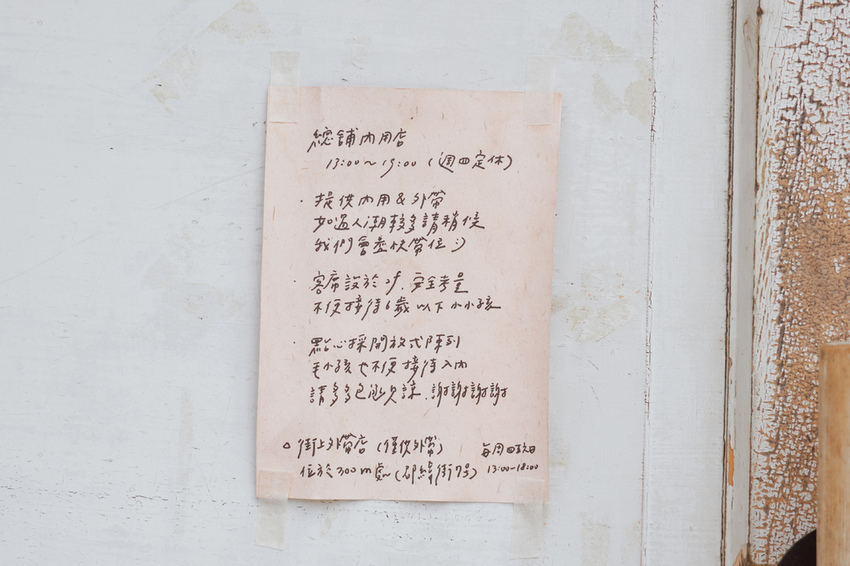 總舖內用店
13:00~19:00 (週四定休)
· 提供內用&外帶
如遇人潮較多請稍候
我們會盡快帶位:)
· 客席設於2f.安全考量
不便接待6歲以下小小孩
· 點心採開放式陳列
毛小孩也不便接待入內
請多多包涵見諒.謝謝謝謝
△ 街上外帶店 (僅供外帶) 每周四致日
位於300m處 (郡緯街7号) 13:00-18:00